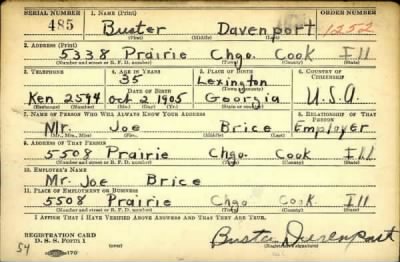 SERIAL NUMBER 1. NAME (Print) ORDER NUMBER
485 Buster Davenport 1252
(First) (Middle) (Last)
2. ADDRESS (Print)
5338 Prairie Chgo. Cook Ill
(Number and street or R. F. D. number) (Town) (County) (State)
3. TELEPHONE 4. AGE IN YEARS 5. PLACE OF BIRTH 6. COUNTRY OF CITIZENSHIP
35 Lexington
DATE OF BIRTH (Town or county)
Ken 2594 Oct 2 1905 Georgia U.S.A
(Exchange) (Number) (Mo.) (Day) (Yr.) (State or country)
7. NAME OF PERSON WHO WILL ALWAYS KNOW YOUR ADDRESS 8. RELATIONSHIP OF THAT PERSON
Mr. Joe Brice Employer
(Mr., Mrs., Miss) (First) (Middle) (Last)
9. ADDRESS OF THAT PERSON
5508 Prairie Chgo. Cook Ill
(Number and street or R. F. D. number) (Town) (County) (State)
10. EMPLOYER'S NAME
Mr. Joe Brice
11. PLACE OF EMPLOYMENT OR BUSINESS
5508 Prairie Chgo Cook Ill
(Number and street or R. F. D. number) (Town) (County) (State)
I AFFIRM THAT I HAVE VERIFIED ABOVE ANSWERS AND THAT THEY ARE TRUE.
REGISTRATION CARD
D. S. S. FORM 1 Buster Davenport
54 (Registrant's signature)